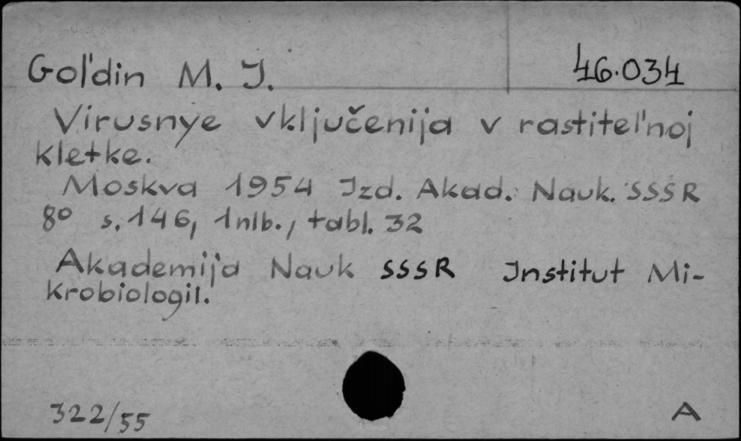 Gol'din M. J. 46.034
Virusnye vključenija v rastitel'noj
kletke.
Moskva 1954 Jzd. Akad. Nauk. SSSR
8° s. 146, 1nlb., tabl. 32
Akademija Nauk SSSR Jnstitut Mi-
krobiologii.
322/55 A